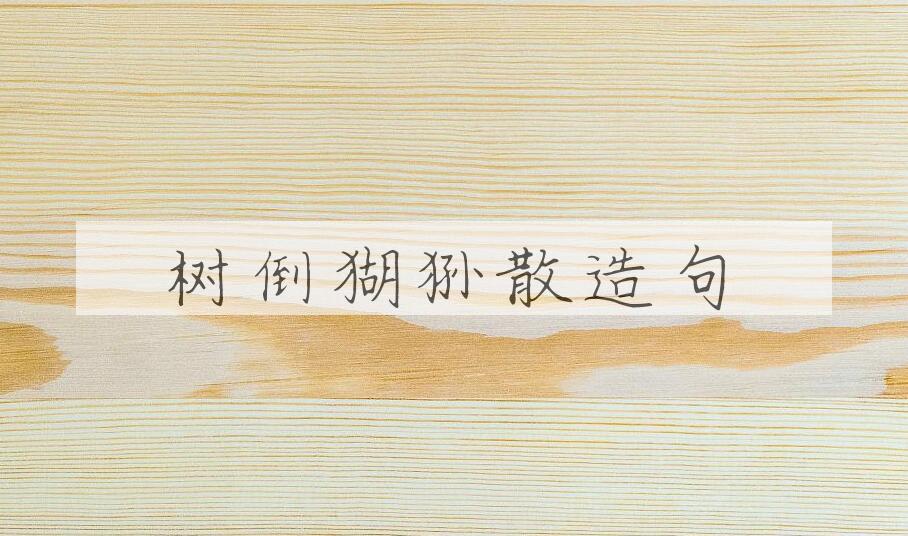 树倒猢狲散造句